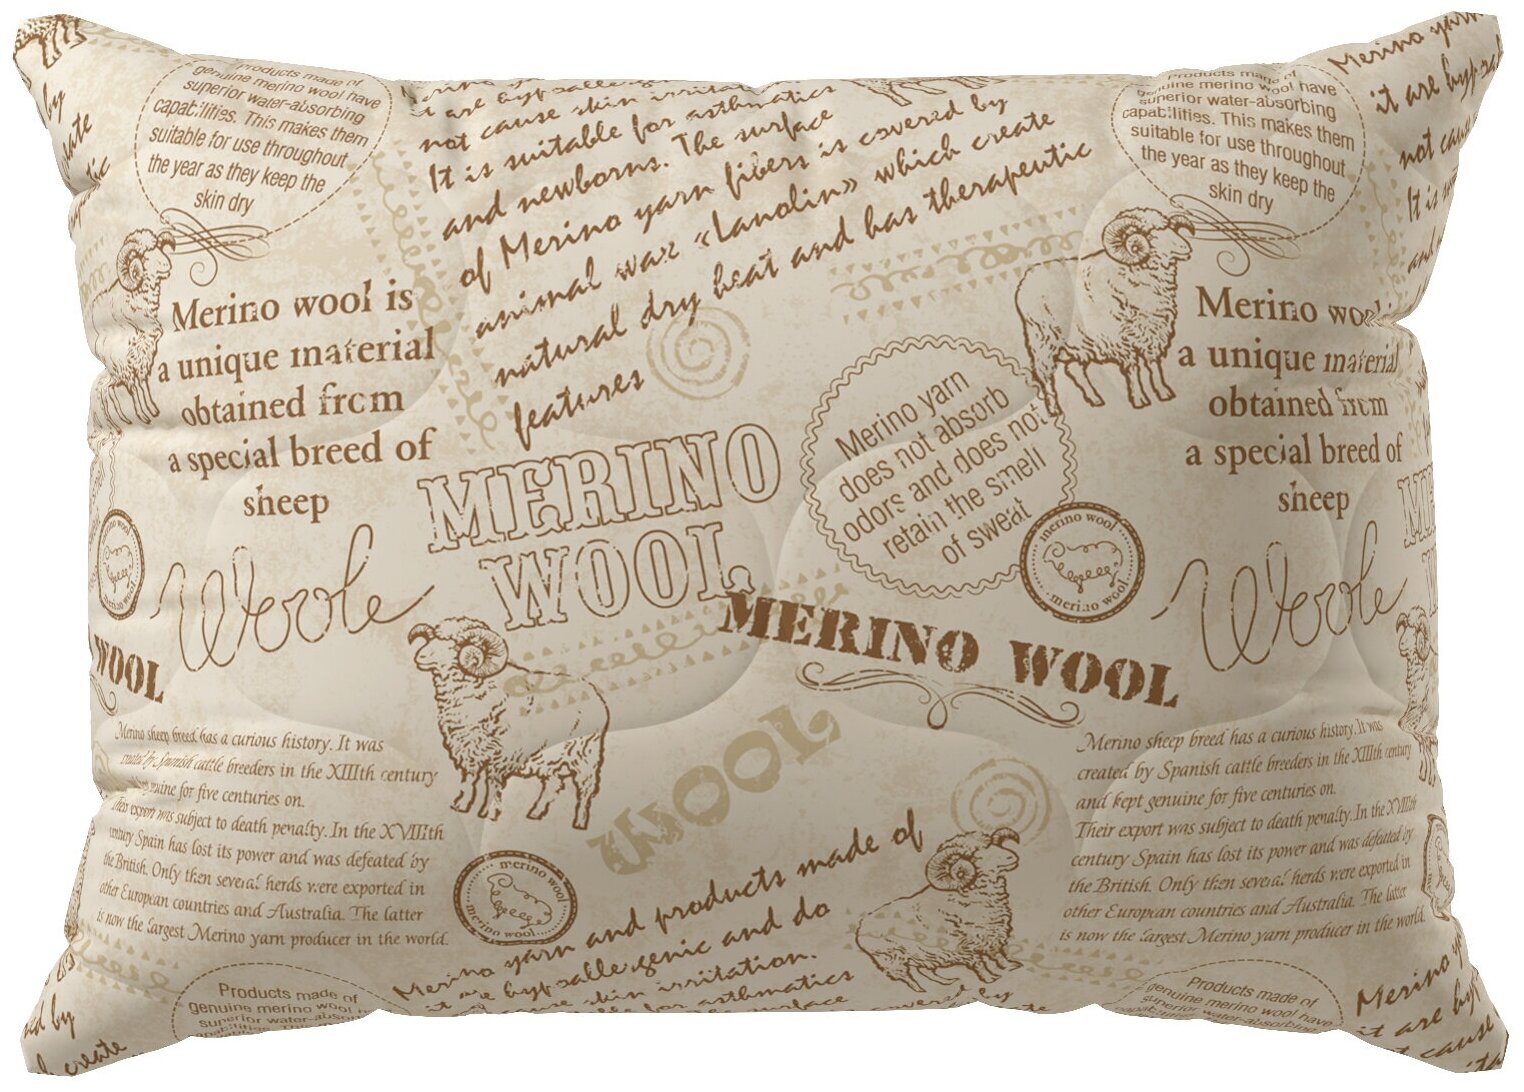 Products made of
genuine merino wool have
superior water-absorbing
capabilities. This makes them
suitable for use throughout
the year as they keep the
skin dry
by
not cause skin
It is suitable for asthmatics
and newborns. The surface
of Merino yarn fibers is covered by
animal wax «Lanolin» which create
natural dry heat and has therapeutic
features
Products made of
genuine merino wool have
superior water-absorbing
capabilities. This makes them
suitable for use throughout
the year as they keep the
skin dry
Merino
it are
not
It is
Merino wool is
a unique material
obtained from
a special breed of
sheep
Merino wool
a unique material
obtained from
a special breed of
sheep
MERINO
WOOL
Merino yarn
does not absorb
odors and does not
retain the smell
of sweat
merino wool
merino wool
merino wool
merino wool
Woole
Woole
WOOL
MERINO WOOL
WOOL
Merino sheep breed has a curious history. It was
created by Spanish cattle breeders in the XIIIth century
genuine for five centuries on.
Their export was subject to death penalty. In the XVIIIth
century Spain has lost its power and was defeated by
the British. Only then several herds were exported in
other European countries and Australia. The latter
is now the largest Merino yarn producer in the world.
Merino sheep breed has a curious history. It was
created by Spanish cattle breeders in the XIIIth century
and kept genuine for five centuries on.
Their export was subject to death penalty. In the XVIIIth
century Spain has lost its power and was defeated by
the British. Only then several herds were exported in
other European countries and Australia. The latter
is now the largest Merino yarn producer in the world.
merino wool
merino wool
Merino yarn and products made of
it are hypoallergenic and do
cause skin irritation.
for asthmatics
surface
covered by
Products made of
genuine merino wool
superior water-absor
Products made of
genuine merino wool have
superior water-absorbing
by
create
Merino
it are
cause